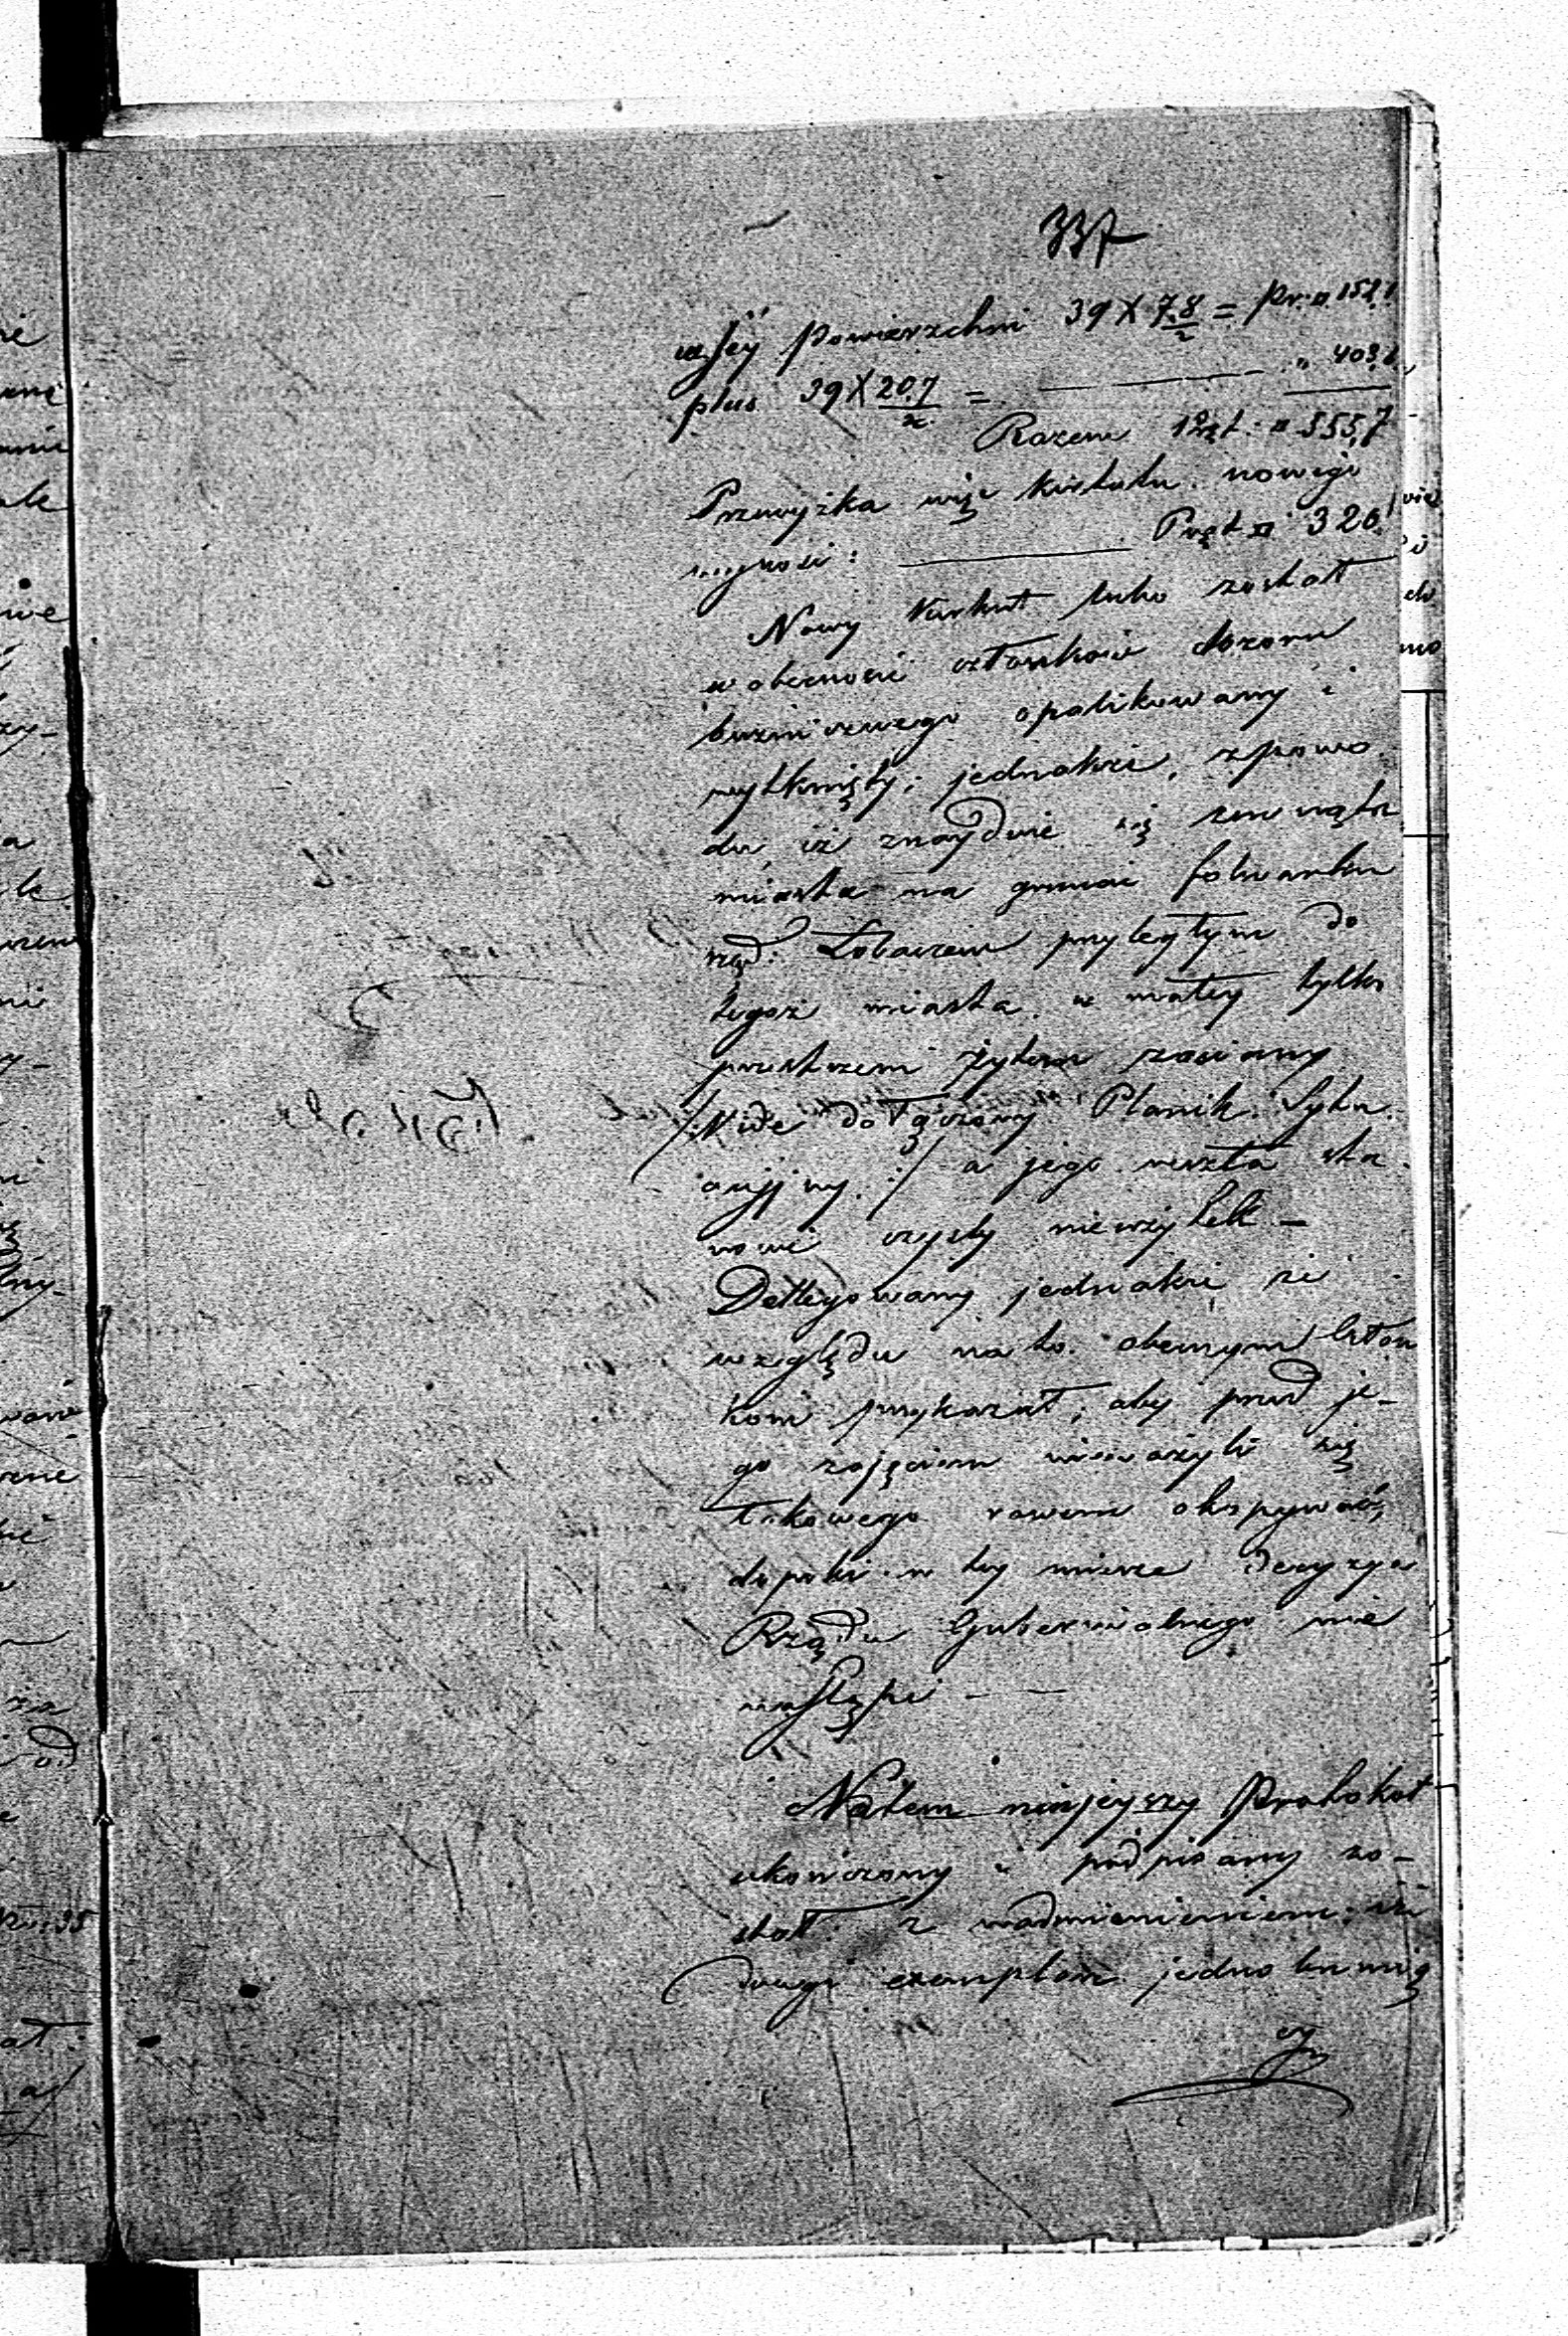 337
ussey powierzchni 39 X 7.8/2 = Pr. □ 152,1
plus 39 X 20.7/2 = — " 403,6
Razem Pręt. □ 555,7
Przewyżka więc kirkutu nowego
Pręt □ 320
Nowy Kirkut lubo został
w obecności członków dozoru
bużniczego opalikowany i
wytknięty; jednakże, z powo
du, iż znayduie się zewnątrz
miasta na gruncie folwarku
rząd: Łobaczew przyległym do
tegoż miasta w małey tylko
przestrzeni żytem zasiany
/: Vide dołączony Planik Sytu
acyjny :/ a jego reszta sta
nowi czysty nieużytek —
Delegowany jednakże ze
względu na to obecnym Człon
kom przykazał, aby przed je-
go zajęciem nieważyli się
takowego rowem okopywać,
dopóki w tey mierze decyzya
Rządu Gubernialnego nie
nastąpi — —
Natem ninieyszy Protokół
ukończony i podpisany zo-
stał: z nadmienieniem: iż
drugi exemplarz jednobrzmią